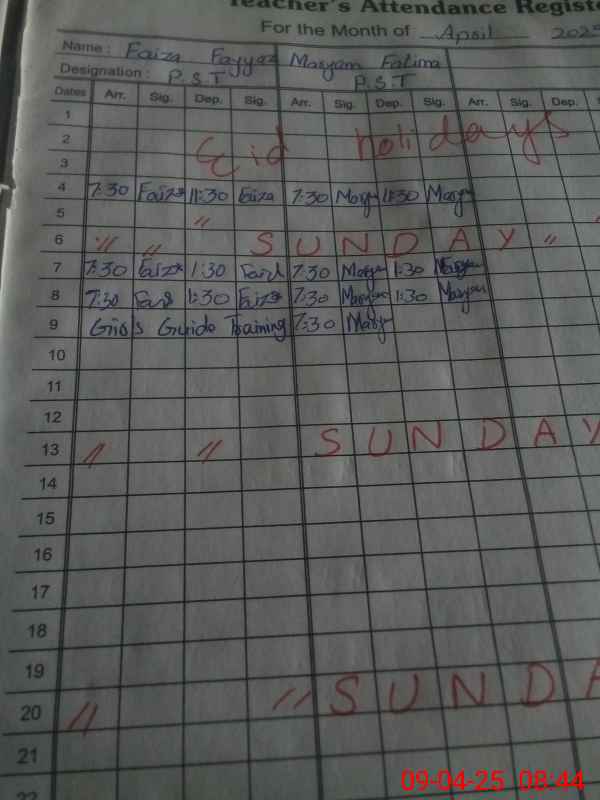 Teacher's Attendance Registe
For the Month of April 2025
Name : Faiza Fayyaz Maryam Fatima
Designation : P.S.T P.S.T
Dates Arr. Sig. Dep. Sig. Arr. Sig. Dep. Sig. Arr. Sig. Dep.
1
2 Eid holidays
3
4 7:30 Faiza 11:30 Faiza 7:30 Marym 11:30 Marym
5 "
6 " " SUNDAY "
7 7:30 Faiza 1:30 Faiza 7:30 Maryam 1:30 Maryam
8 7:30 Faiza 1:30 Faiza 7:30 Maryam 1:30 Maryam
9 Girls Guide Training 7:30 Marym
10
11
12
13 " " SUNDAY
14
15
16
17
18
19
20 " " SUNDA
21
22
09-04-25 08:44